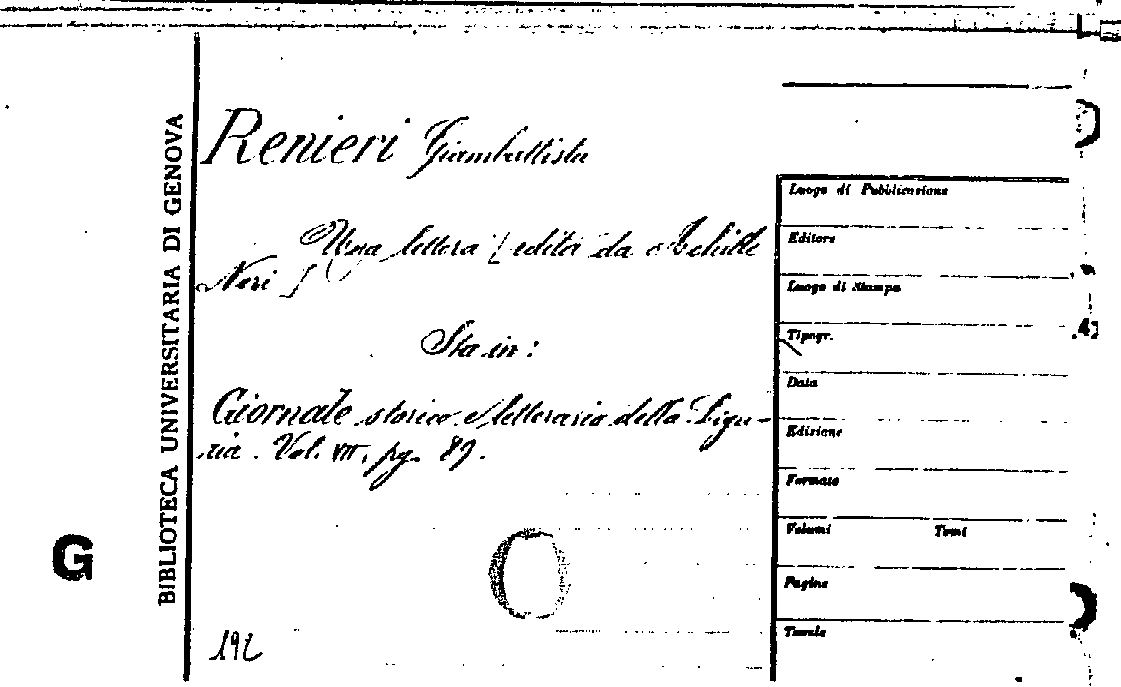 BIBLIOTECA UNIVERSITARIA DI GENOVA
G
Renieri Giambattista
Una lettera [edita da Achille
Neri]
Sta in:
Giornale storico e letterario della Ligu-
ria. Vol. VII, pg. 89.
192
Luogo di Pubblicazione
Editore
Luogo di Stampa
Tipogr.
Data
Edizione
Formato
Volumi Tomi
Pagine
Tavole